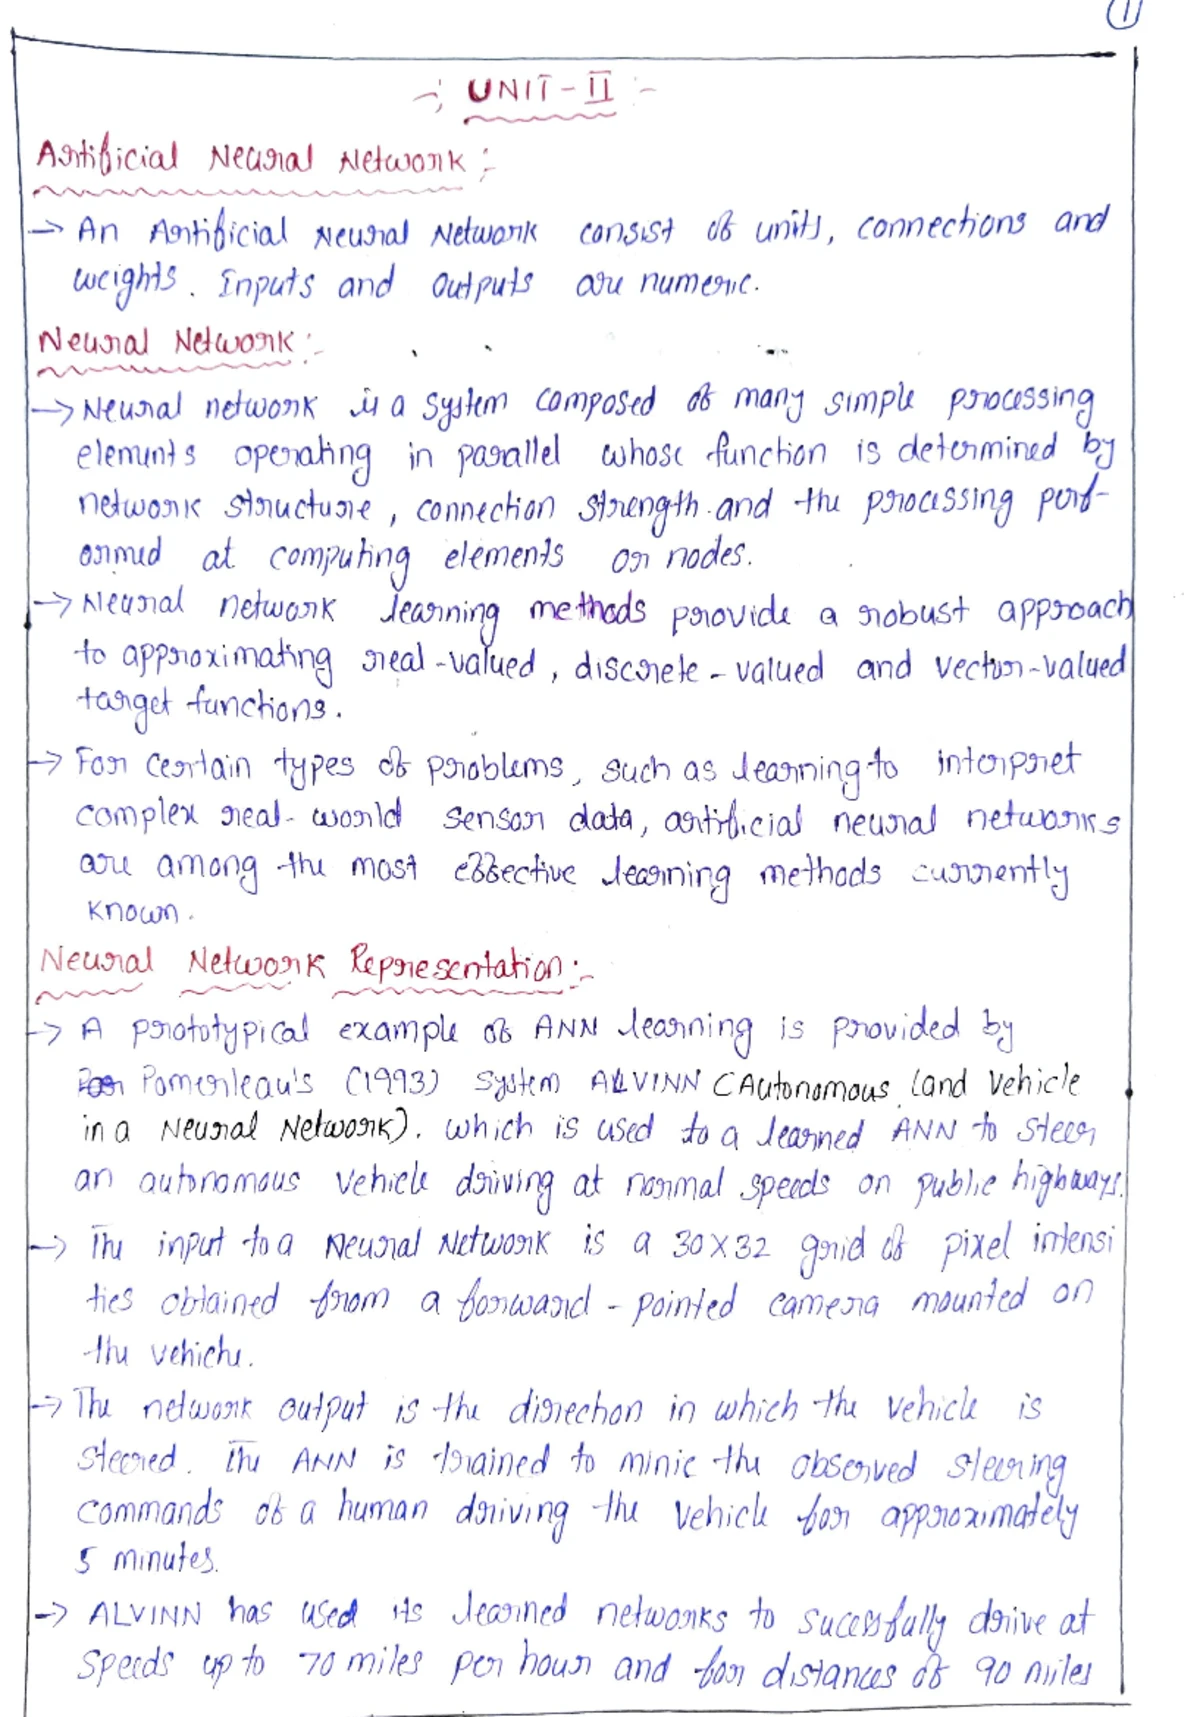 1
-: UNIT-II :-
Artificial Neural Network :-
→ An Artificial Neural Network consist of units, connections and
weights. Inputs and outputs are numeric.
Neural Network :-
→ Neural network is a system composed of many simple processing
elements operating in parallel whose function is determined by
network structure, connection strength and the processing perf-
ormed at computing elements or nodes.
→ Neural network learning methods provide a robust approach
to approximating real-valued, discrete-valued and vector-valued
target functions.
→ For certain types of problems, such as learning to interpret
complex real-world sensor data, artificial neural networks
are among the most effective learning methods currently
known.
Neural Network Representation :-
→ A prototypical example of ANN learning is provided by
Pomerleau's (1993) system ALVINN (Autonomous Land Vehicle
in a Neural Network). which is used to a learned ANN to steer
an autonomous vehicle driving at normal speeds on public highways.
→ The input to a Neural Network is a 30X32 grid of pixel intensi
ties obtained from a forward-pointed camera mounted on
the vehicle.
→ The network output is the direction in which the vehicle is
steered. The ANN is trained to minic the observed steering
commands of a human driving the vehicle for approximately
5 minutes.
→ ALVINN has used its learned networks to sucessfully drive at
speeds up to 70 miles per hour and for distances of 90 miles